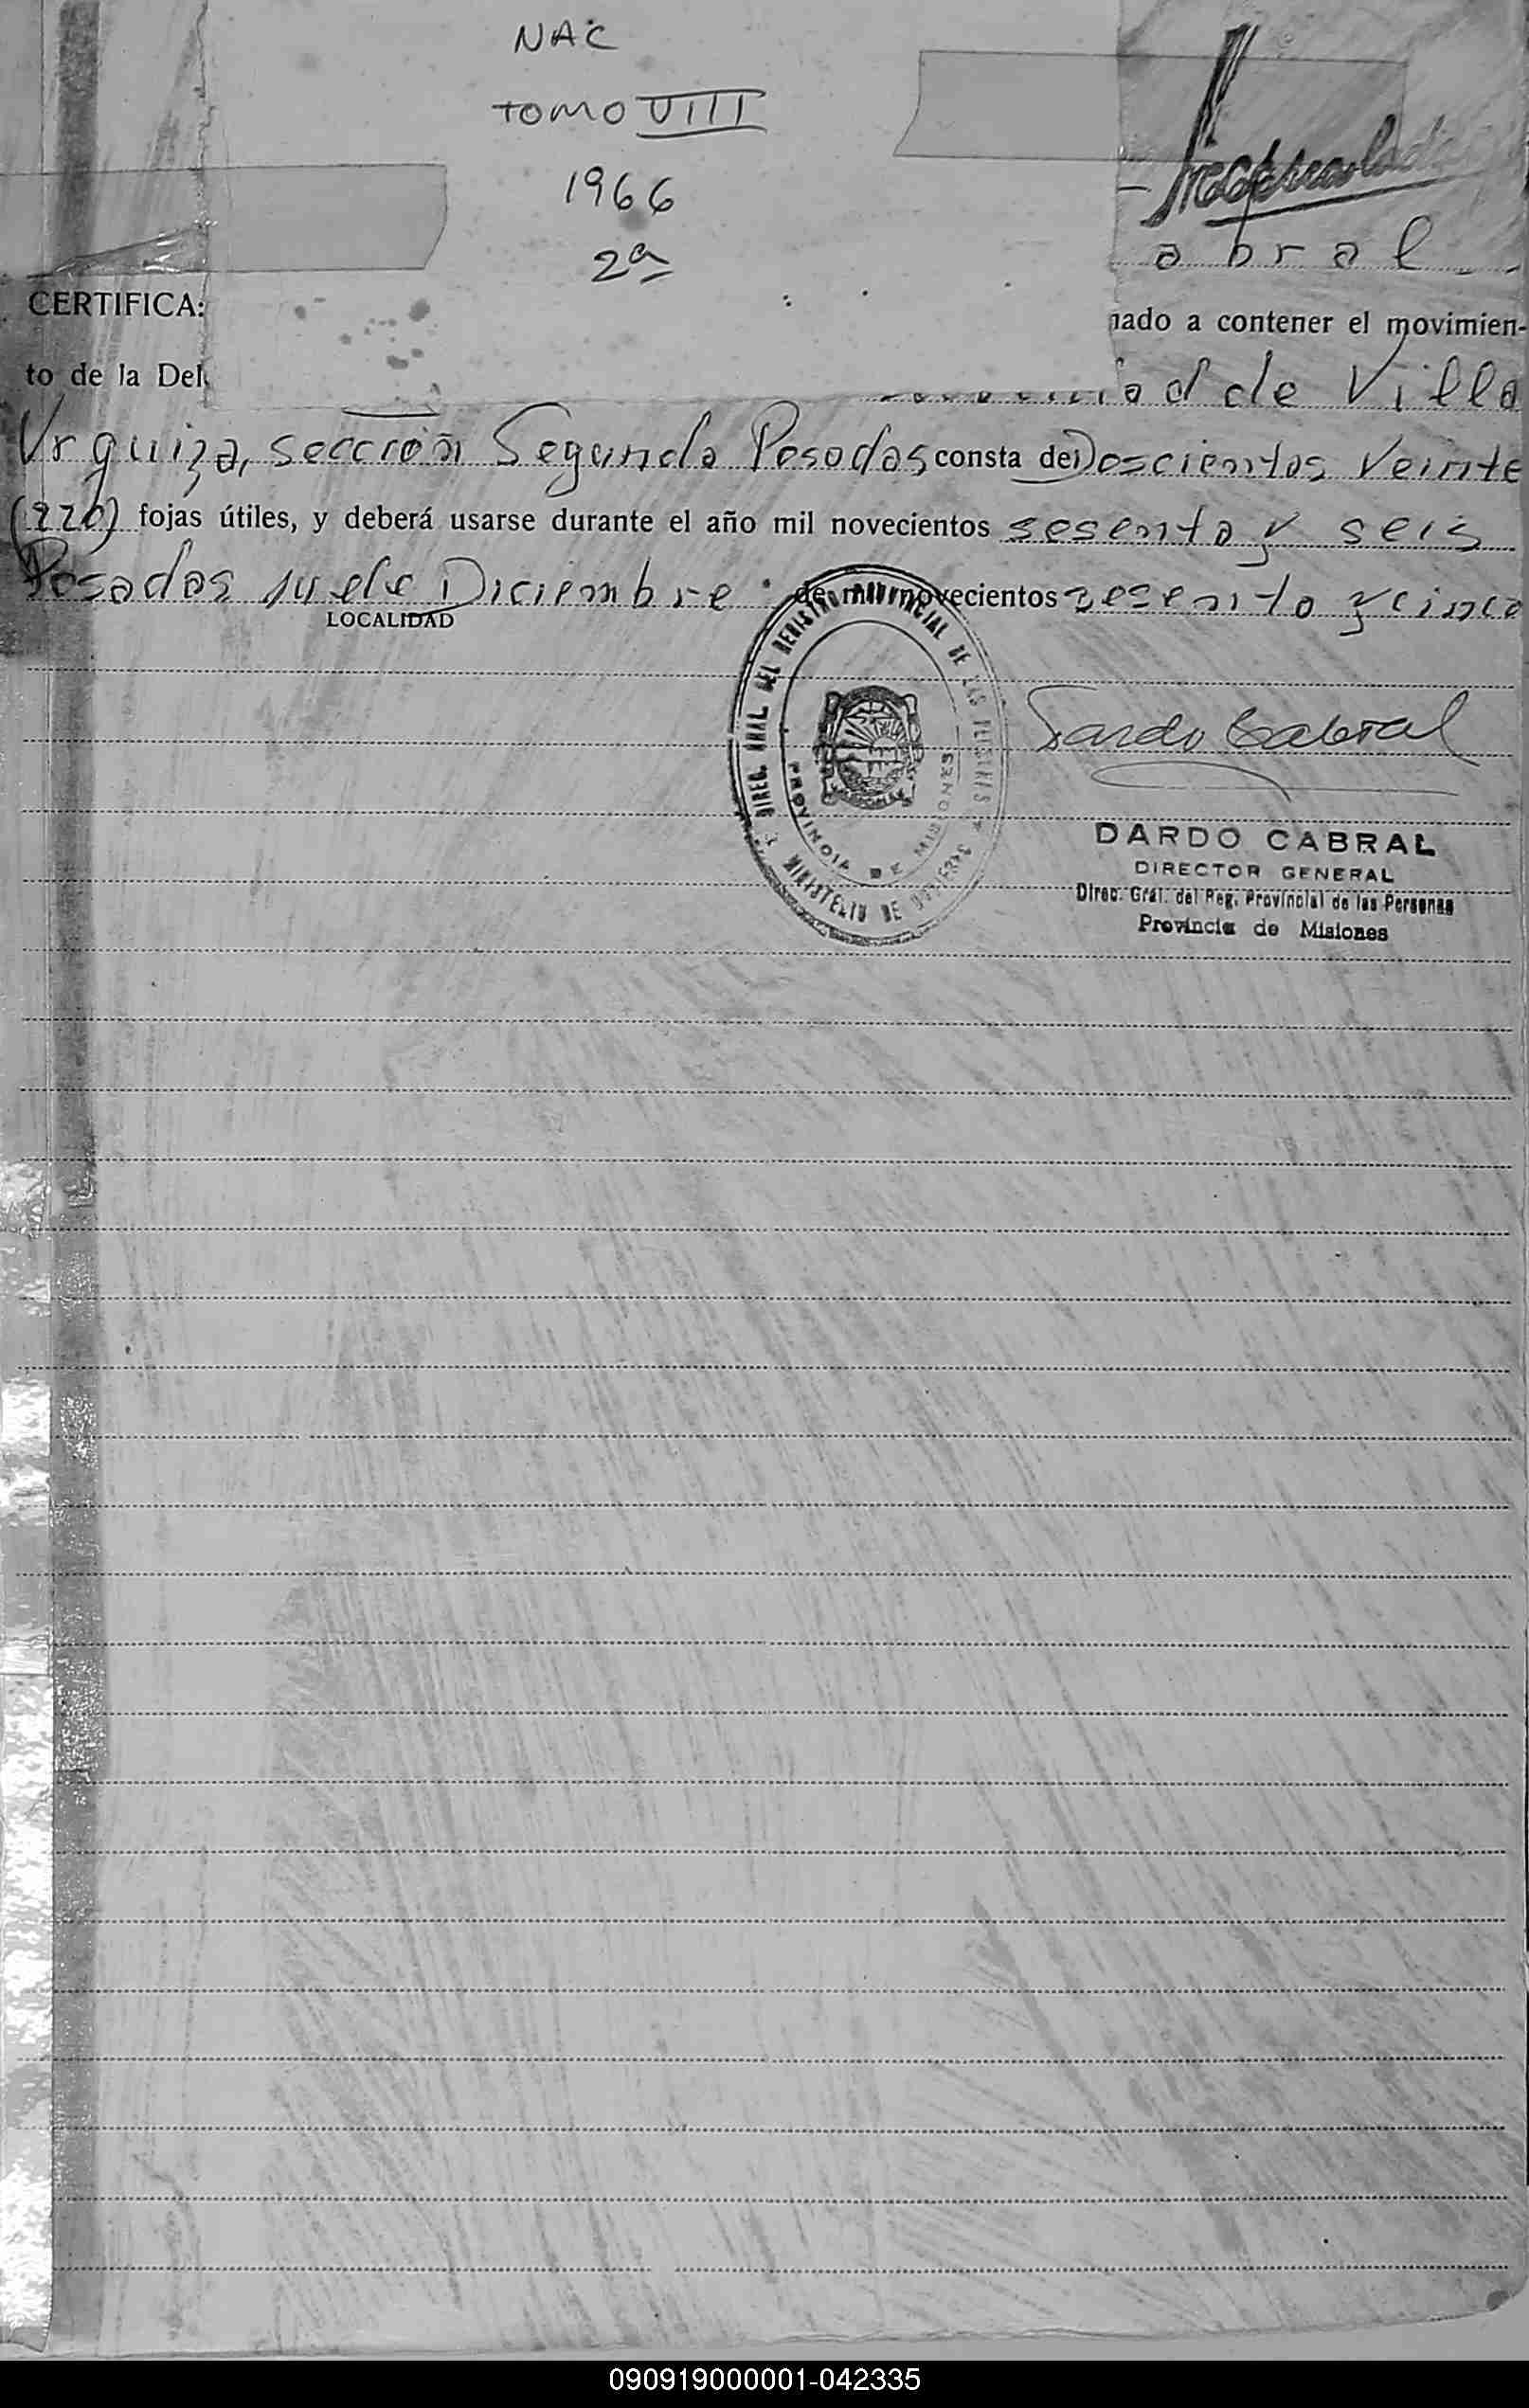 NAC
TOMO VIII
1966
2ª
abral
CERTIFICA:
nado a contener el movimien-
to de la Del
d de Villa
Urquiza, sección Segunda Posadas consta de Doscientos Veinte
(220) fojas útiles, y deberá usarse durante el año mil novecientos sesenta y seis
Posadas 14 de Diciembre de mil novecientos sesenta y cinco
LOCALIDAD
DIREC. GRAL. DEL REGISTRO PROVINCIAL DE LAS PERSONAS
MINISTERIO DE GOBIERNO
PROVINCIA DE MISIONES
Dardo Cabral
DARDO CABRAL
DIRECTOR GENERAL
Direc. Gral. del Reg. Provincial de las Personas
Provincia de Misiones
090919000001-042335